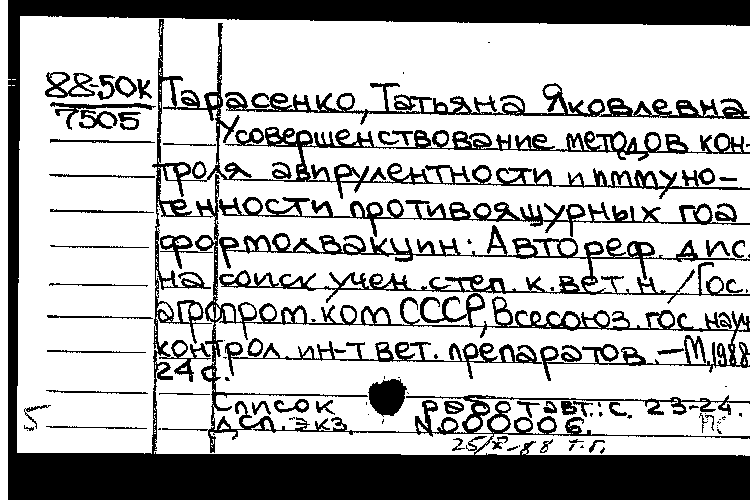 88-50К
7505
Тарасенко, Татьяна Яковлевна
Усовершенствование методов кон-
троля авирулентности и иммуно-
генности противоящурных гоа
формолвакцин: Автореф. дис.
на соиск. учен. степ. к. вет. н. / Гос.
агропром. ком СССР, Всесоюз. гос. науч
контрол. ин-т вет. препаратов. — М, 1988
24 с.
Список работ авт.: с. 23-24.
дсп. экз. N000006.
5